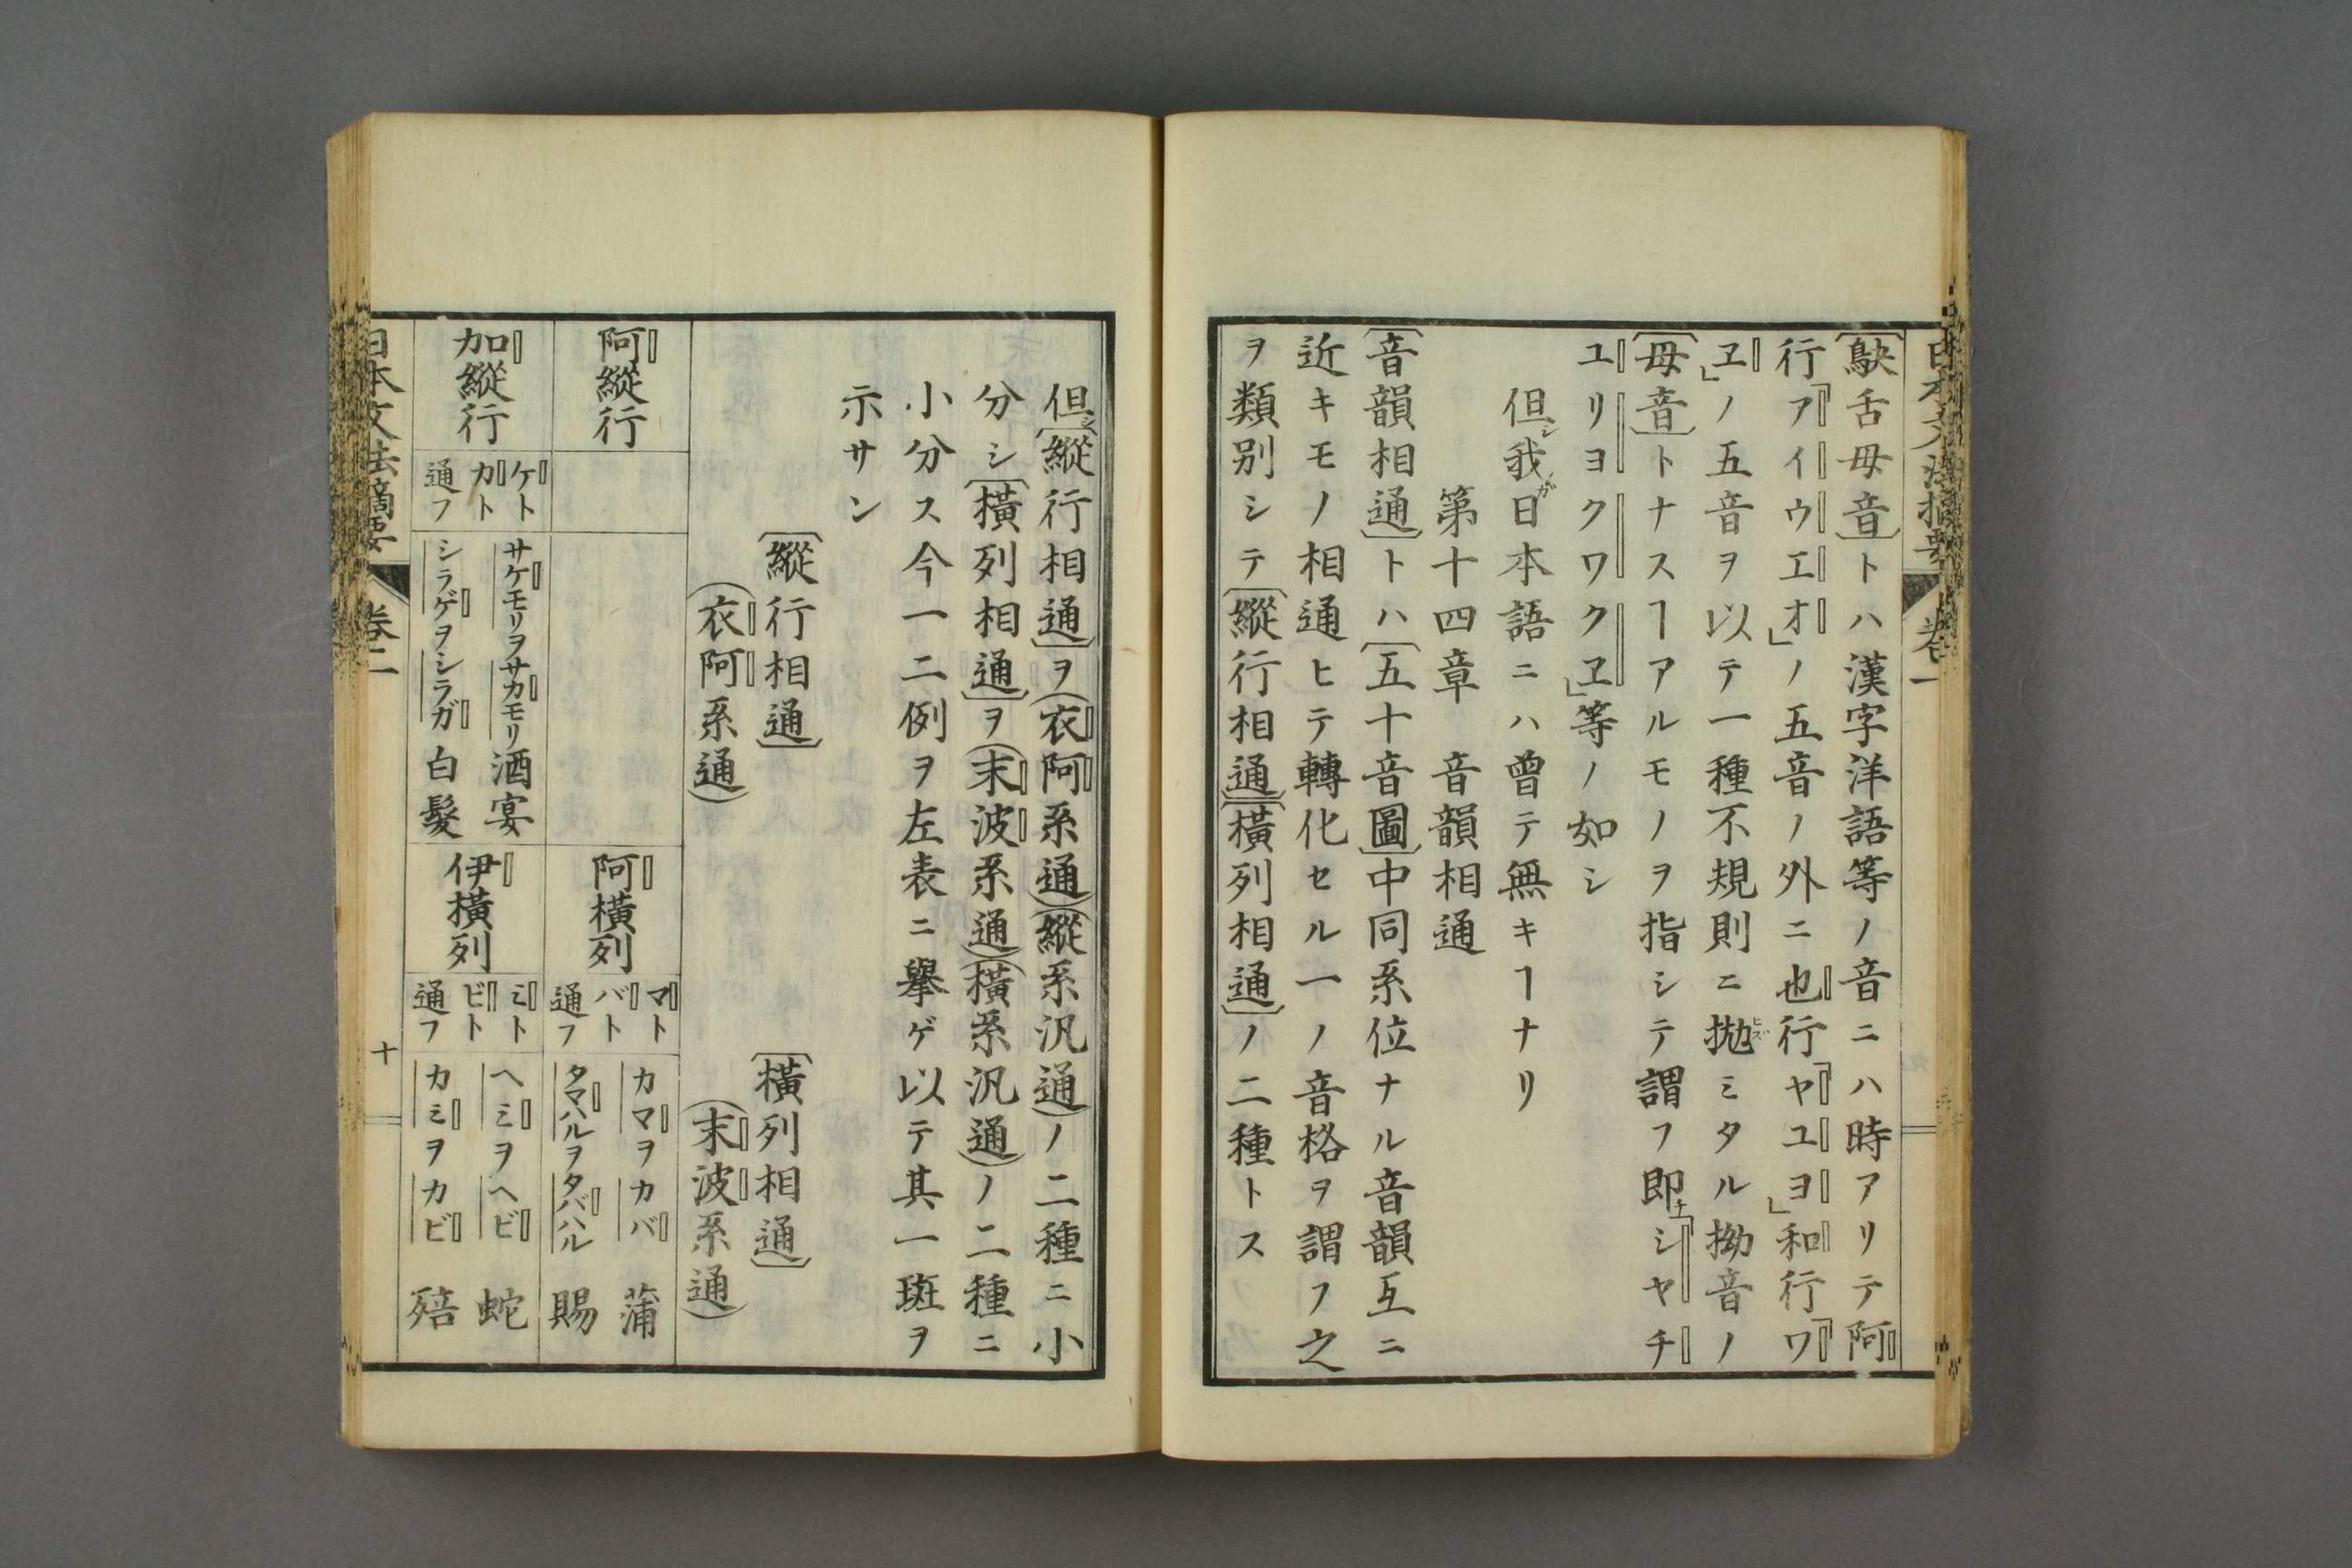 〔鴃舌母音〕トハ漢字洋語等ノ音ニハ時アリテ阿
行「アイウエオ」ノ五音ノ外ニ也行「ヤユヨ」和行「ワ
ヱ」ノ五音ヲ以テ一種不規則ニ拗ミタル拗音ノ
〔母音〕トナスヿアルモノヲ指シテ謂フ即チ「シヤチ
ユリヨクワクヱ」等ノ如シ
但シ我ガ日本語ニハ曾テ無キヿナリ
第十四章 音韻相通
〔音韻相通〕トハ〔五十音圖〕中同系位ナル音韻互ニ
近キモノ相通ヒテ轉化セル一ノ音格ヲ謂フ之
ヲ類別シテ〔縱行相通〕〔橫列相通〕ノ二種トス
但シ〔縱行相通〕ヲ(衣阿系通)(縱系汎通)ノ二種ニ小
分シ〔橫列相通〕ヲ(末波系通)(橫系汎通)ノ二種ニ
小分ス今一二例ヲ左表ニ擧ゲ以テ其一斑ヲ
示サン
〔縱行相通〕
〔橫列相通〕
(衣阿系通)
(末波系通)
阿縱行
阿橫列
マト
バト
通フ
カマヲカバ 蒲
タマハルヲタバハル 賜
加縱行
ケト
カト
通フ
サケモリヲサカモリ 酒宴
シラゲヲシラガ 白髮
伊橫列
ミト
ビト
通フ
ヘミヲヘビ 蛇
カミヲカビ
日本文法摘要
卷二
十